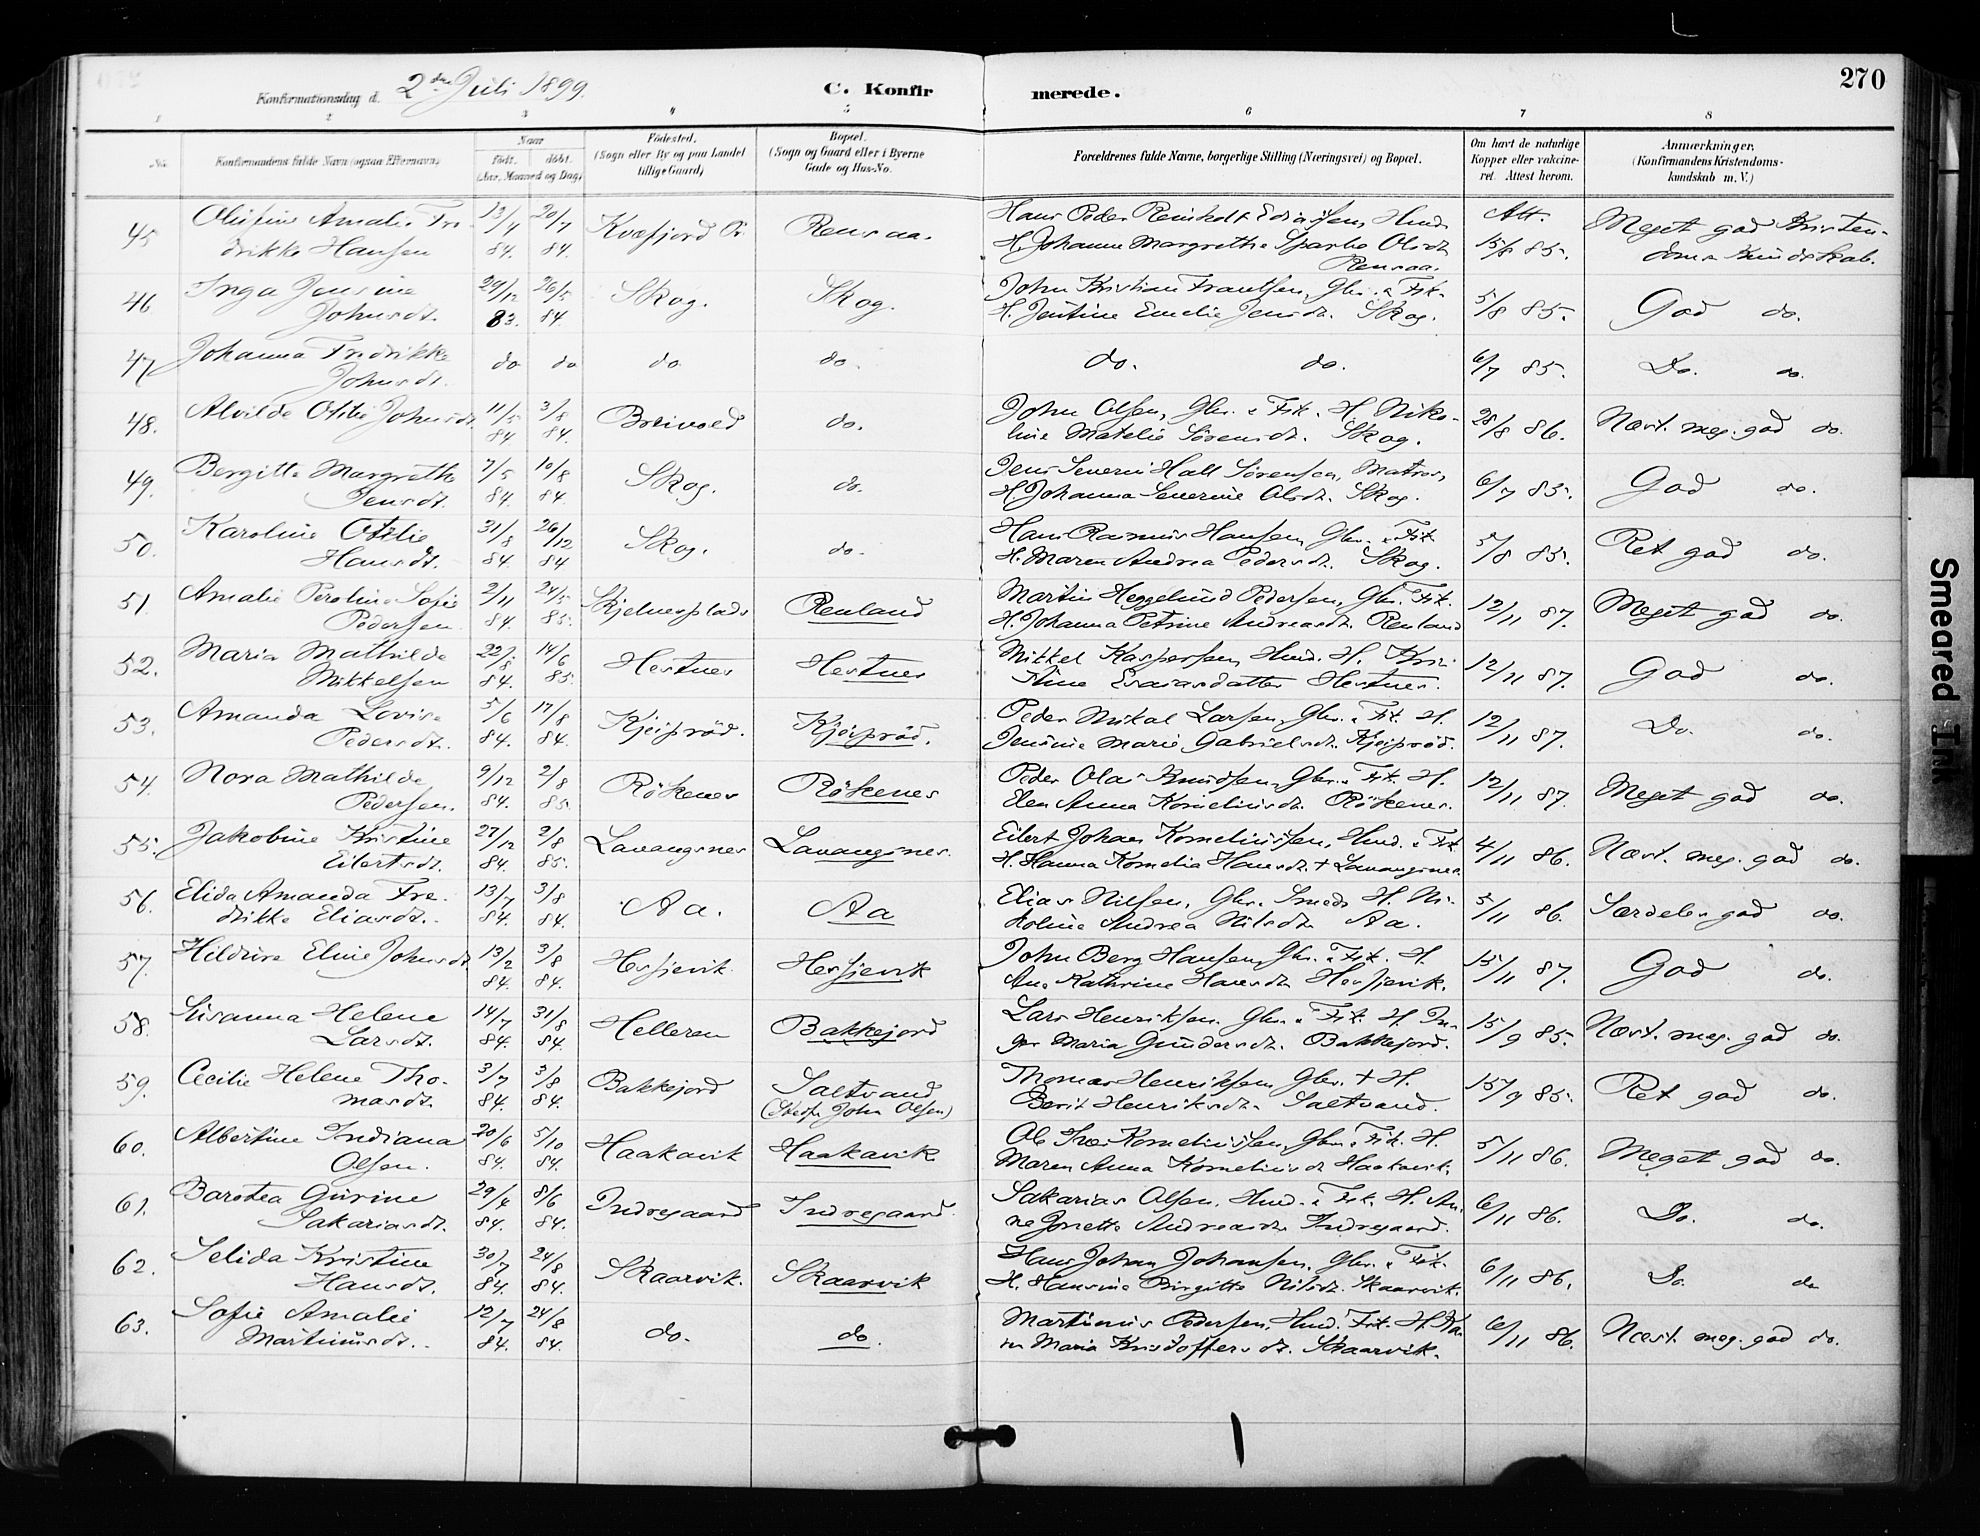 270
Konfirmationsdag d. 2den Juli 1899.
C. Konfirmerede.
1 2 3 4 5 6 7 8
No. Konfirmandens fulde Navn (ogsaa Efternavn) Naar født. døbt. (Aar, Maaned og Dag) Fødested. (Sogn eller By og paa Landet tillige Gaard) Bopæl. (Sogn og Gaard eller i Byerne Gade og Hus-No. Forældrenes fulde Navne, borgerlige Stilling (Næringsvei) og Bopæl. Om havt de naturlige Kopper eller vakcineret. Attest herom. Anmærkninger. (Konfirmandens Kristendomskundskab m. V.)
45 Amalie Fre- 13/4 20/7 Kvæfjord Rensaa. Hans Peder Reinholt Hmd. Att. Meget god Kristen-
drikke Hansen 84. 84. H. Johanna Margrethe Olsdt. 15/8 85. doms Kundskab.
Rensaa.
46 Inga Jensine 29/12 26/5 Skog. Skog. John Kristian Frantsen, Gbr. & Fisk. 5/8 85. God do.
Johnsdt. 83. 84. H. Jentine Emelie Jensdt. Skog.
47 Johanna Fredrikke do do do do. do. do. 6/7 85. Do. do.
Johnsdt.
48. Alvilde Otilie Johnsdt. 11/5 3/8 Breivold do. John Olsen, Gbr. & Fisk. H. Niko- 28/8 86. Næst. meg. god do.
84 84. line Matelie Sørensdt. Skog.
49. Bergitte Margrethe 7/5 10/8 Skog. do. Jens Severin Hall Sørensen, Matros, 6/7 85. God do.
Jensdt. 84. 84. H. Johanna Severine Olsdt. Skog.
50. Karoline Otelie 31/8 26/12 Skog. do. Hans Rasmus Hansen, Gbr. & Fisk. 5/8 85. Ret god do.
Hansdt. 84. 84 H. Maren Andrea Pedersdt. Skog.
51. Amalie Peroline Sofie 2/11 24/5 Skjelnesplads Renland Martin Heggelund Pedersen, Gbr. Fisk. 12/11 87. Meget god do.
Pedersen. 84. 85. H. Johanna Petrine Andreasdt. Renland
52. Maria Mathilde 22/8 14/6 Hestnes Hestnes Mikkel Kaspersen, Hmd. H. Kri- 12/11 87. God do.
Mikkelsen 84. 85. stine Esaiasdatter Hestnes.
53. Amanda Lovise 5/6 17/8 Kjeiprød. Kjeiprød. Peder Mikal Larsen, Gbr. & Fisk. H. 12/11 87. Do. do.
Pedersdt. 84. 84. Jensine Marie Gabrielsdt. Kjeiprød.
54. Nora Mathilde 9/12 2/8 Røkenes Røkenes Peder Olai Knudsen, Gbr. & Fisk. H. 12/11 87. Meget god do.
Pedersen. 84. 85. Elen Anna Korneliusdt. Røkenes.
55. Jakobine Kristine 27/12 2/8 Lavangsnes Lavangsnes. Eilert Johan Korneliussen, Hmd. & Fisk. 4/11 86. Næst. meg. god do.
Eilertsdt. 84. 85. H. Hanna Kornelia Hansdt. + Lavangsnes.
56. Elida Amanda Fre- 13/7 3/8 Aa. Aa Elias Nilsen, Gbr. Smed. H. Ni- 5/11 86. Særdeles god do.
drikke Eliasdt. 84. 84. koline Andrea Nilsdt. Aa.
57. Hildine Eline Johnsdt. 13/2 3/8 Hersjevik. Hersjevik John Berg Hansen, Gbr. & Fisk. H. 15/11 87. God do.
84. 84. Ane Kathrine Hansdt. Hersjevik.
58. Susanna Helene 14/7 31/8 Helleren Bakkejord Lars Henriksen. Gbr. & Fisk. H. In- 15/9 85. Næst. meg. god do.
Larsdt. 84. 84. ger Maria Gundersdt. Bakkejord.
59. Cecilie Helene Tho- 3/7 3/8 Bakkejord Saltvand Thomas Henriksen, Gbr. + H. 15/9 85. Ret god do.
masdt. 84. 84. (Stedf. John Olsen) Berit Henriksdt. Saltvand.
60. Albertine Indiana 20/6 5/10 Haakavik Haakavik Ole Korneliussen, Gbr. & Fisk. H. 5/11 86. Meget god do.
Olsen. 84. 84. Maren Anna Korneliusdt Haakavik.
61. Barotea Gurine 29/4 8/6 Indregaard Indregaard. Sakarias Olsen. Hmd. & Fisk. H. An- 6/11 86. Do. do.
Sakariasdt. 84. 84. ne Jonette Andreasdt. Indregaard.
62. Selida Kristine 30/7 24/8 Skaarvik. Skaarvik Hans Johan Johansen, Gbr. & Fisk. 6/11 86. Do. do
Hansdt. 84. 84. H. Hansine Birgitte Nilsdt. Skaarvik.
63. Sofie Amalie 12/7 24/8 do. do. Martinus Pedersen, Hmd. Fisk. H. Ka- 6/11 86. Næst. meg. god do.
Martinusdt. 84. 84. ren Maria Kristoffersdt. Skaarvik.
Smeared Ink